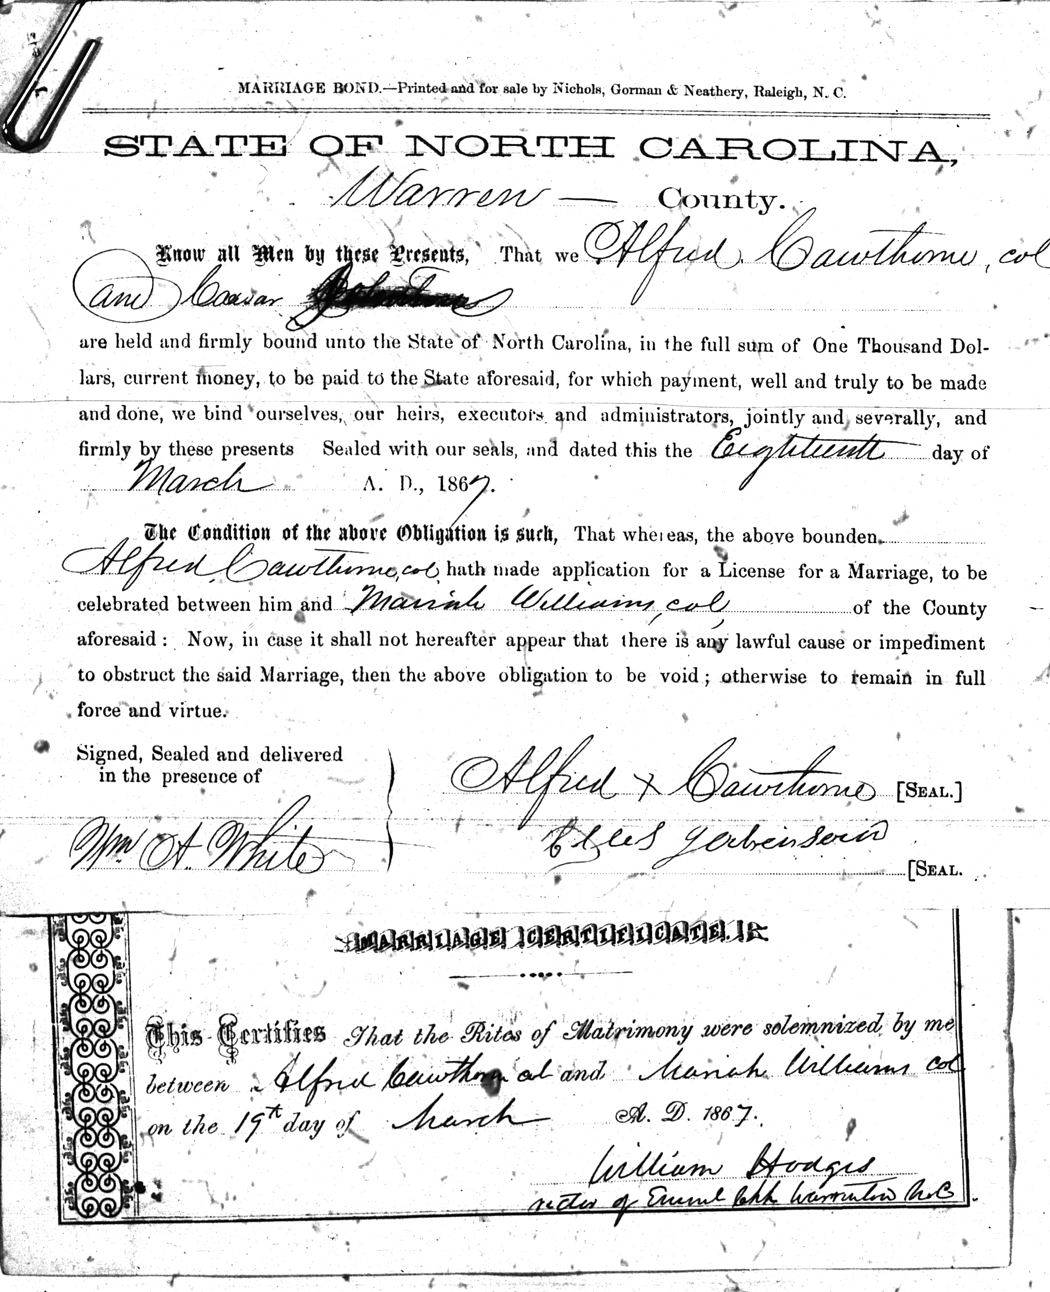 MARRIAGE BOND.—Printed and for sale by Nichols, Gorman & Neathery, Raleigh, N. C.
STATE OF NORTH CAROLINA,
Warren — County.
Know all Men by these Presents, That we Alfred Cawthorne, col
and Caesar
are held and firmly bound unto the State of North Carolina, in the full sum of One Thousand Dol-
lars, current money, to be paid to the State aforesaid, for which payment, well and truly to be made
and done, we bind ourselves, our heirs, executors and administrators, jointly and severally, and
firmly by these presents Sealed with our seals, and dated this the Eighteenth day of
March A. D., 1867.
The Condition of the above Obligation is such, That whereas, the above bounden
Alfred Cawthorne, col, hath made application for a License for a Marriage, to be
celebrated between him and Mariah Williams, col, of the County
aforesaid: Now, in case it shall not hereafter appear that there is any lawful cause or impediment
to obstruct the said Marriage, then the above obligation to be void; otherwise to remain in full
force and virtue.
Signed, Sealed and delivered
in the presence of
Alfred X Cawthorne [SEAL.]
Wm A. White
[SEAL.
MARRIAGE CERTIFICATE.
This Certifies That the Rites of Matrimony were solemnized by me
between Alfred Cawthorn col and Mariah Williams col
on the 19th day of March A. D. 1867.
William Hodges
rector of Emml Chh Warrenton N.C.